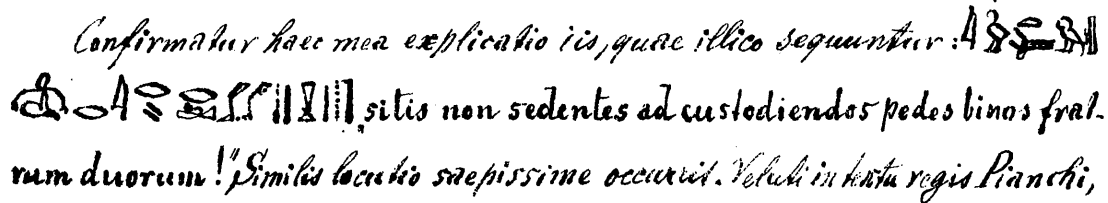 Confirmatur haec mea explicatio iis, quae illico sequuntur:
sitis non sedentes ad custodiendos pedes binos frat-
rum duorum!" Similis locutio saepissime occurrit. Veluti in textu regis Pianchi,